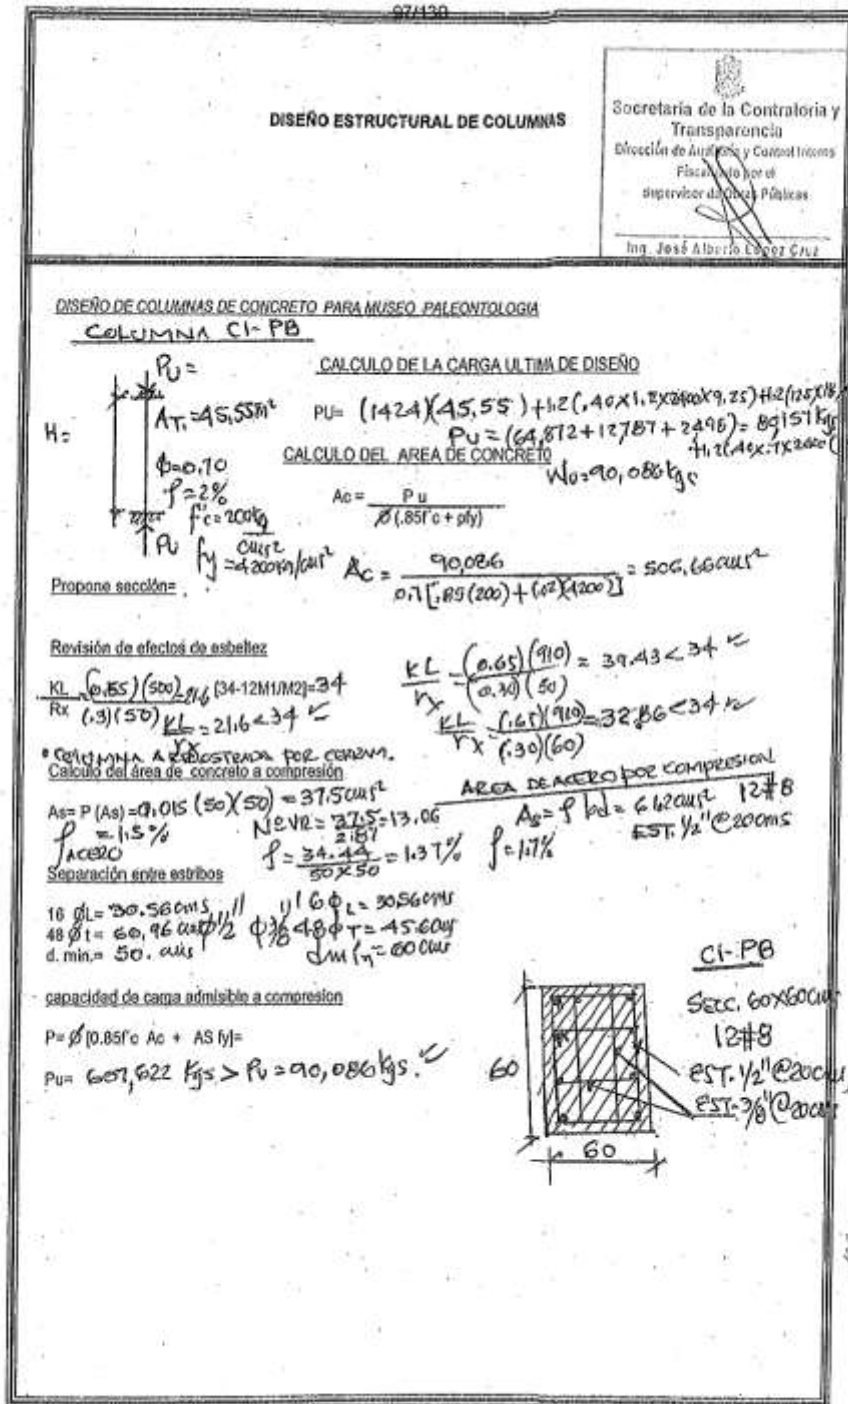 97/130
DISEÑO ESTRUCTURAL DE COLUMNAS
Secretaría de la Contraloría y
Transparencia
Dirección de Auditoría y Control Interno
Fiscalizado por el
supervisor de Obras Públicas
Ing. José Alberto López Cruz
DISEÑO DE COLUMNAS DE CONCRETO PARA MUSEO PALEONTOLOGIA
COLUMNA C1-PB
PU =
CALCULO DE LA CARGA ULTIMA DE DISEÑO
H=
AT1=45.55m²
PU= (1424)(45,55)+1.2(.40x1.2x2400x9.25)+1.2(125x18
PU=(64,872+12,787+2498)=89157Kgs
+1.2(.40x.7x2400(
CALCULO DEL AREA DE CONCRETO
WU=90,086kgs
Φ=0.70
ρ=2%
f'c=200kg/cms²
fy=4200kg/cms²
PU
Ac = Pu
Ø(.85f'c + ρfy)
Propone sección=
Ac = 90,086 / 0.7[.85(200)+(.02)(4200)] = 506,66cms²
Revisión de efectos de esbeltez
KL/Rx (0.65)(500)/(.3)(50) =21.6 [34-12M1/M2]=34
KL/rx = 21.6<34
KL/rx = (0.65)(910)/(0.30)(50) = 39.43<34
KL/rx = (.65)(910)/(.30)(60) =32.86<34
*COLUMNA ARRIOSTRADA POR CERRAM.
Calculo del área de concreto a compresión
As= P (As) =0.015 (50)(50) = 37.5cms²
ρACERO = 1.5%
NºVR = 37.5/2.87 =13.06
ρ= 34.44/50x50 = 1.37%
AREA DE ACERO POR COMPRESION
As= ρbd= 61.2cms² 12#8
EST. 1/2"@20cms
ρ=1.7%
Separación entre estribos
16 ØL= 30.56cms
48 Øt= 60,96 cms Ø1/2"
d. min.= 50. cms
16ΦL=30.56cms
Φ3/8" 48ΦT=45.60cms
dmín=60cms
capacidad de carga admisible a compresion
P= Ø [0.85f'c Ac + AS fy]=
Pu= 607,622 Kgs > Pu=90,086kgs.
C1-PB
SECC. 60x60cms
12#8
EST. 1/2"@20cms
EST-3/8"@20cms
60
60